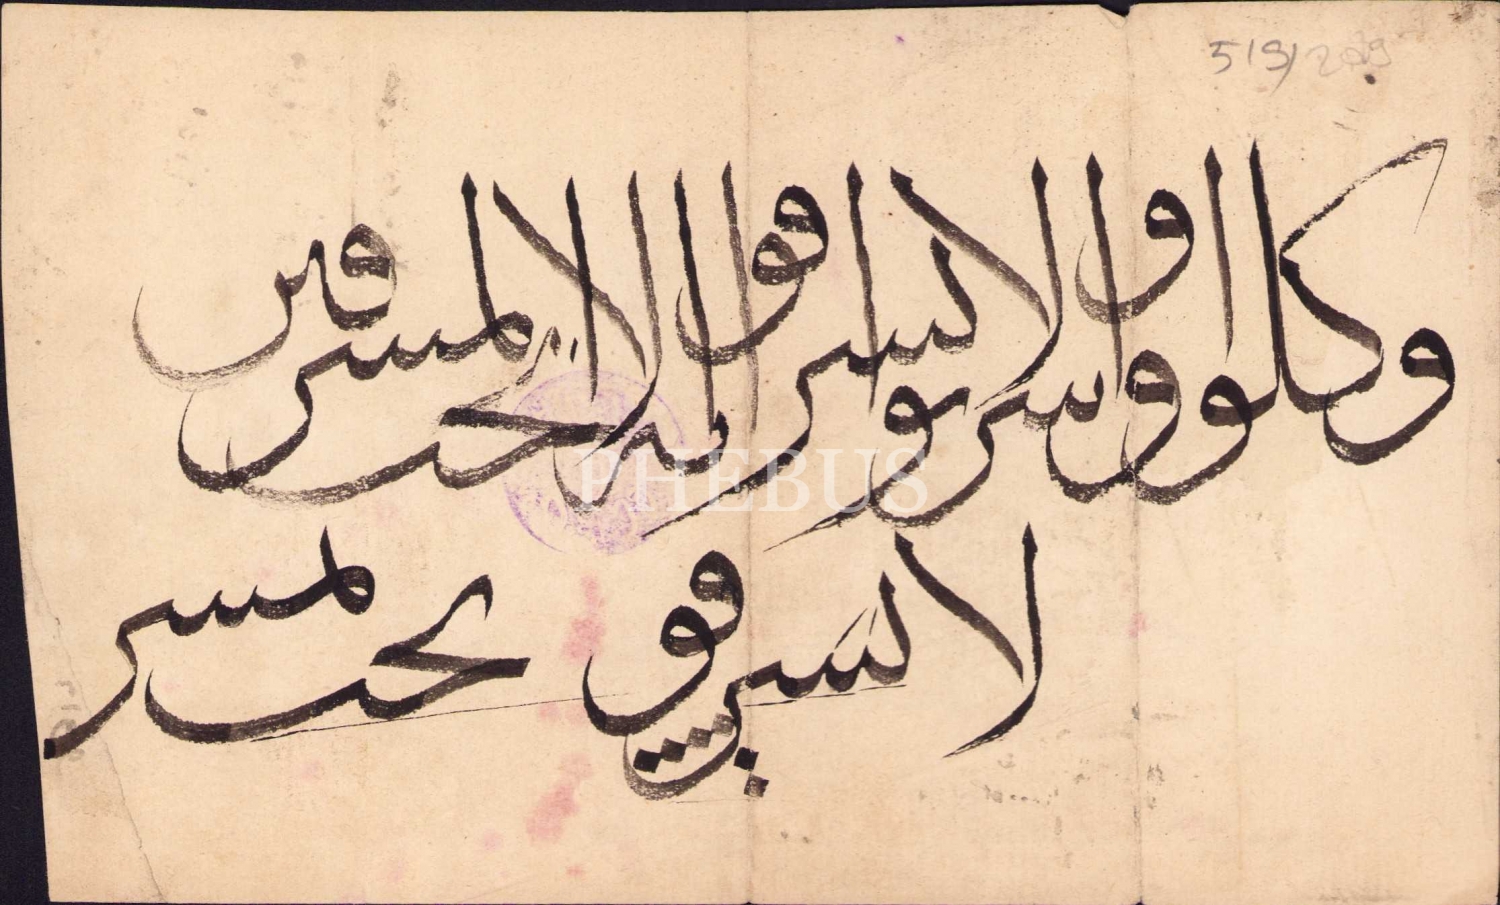 519/209
وكلوا واشربوا ولا تسرفوا انه لا يحب المسرفين
PHEBUS
لا تسرفو يحب لمسر